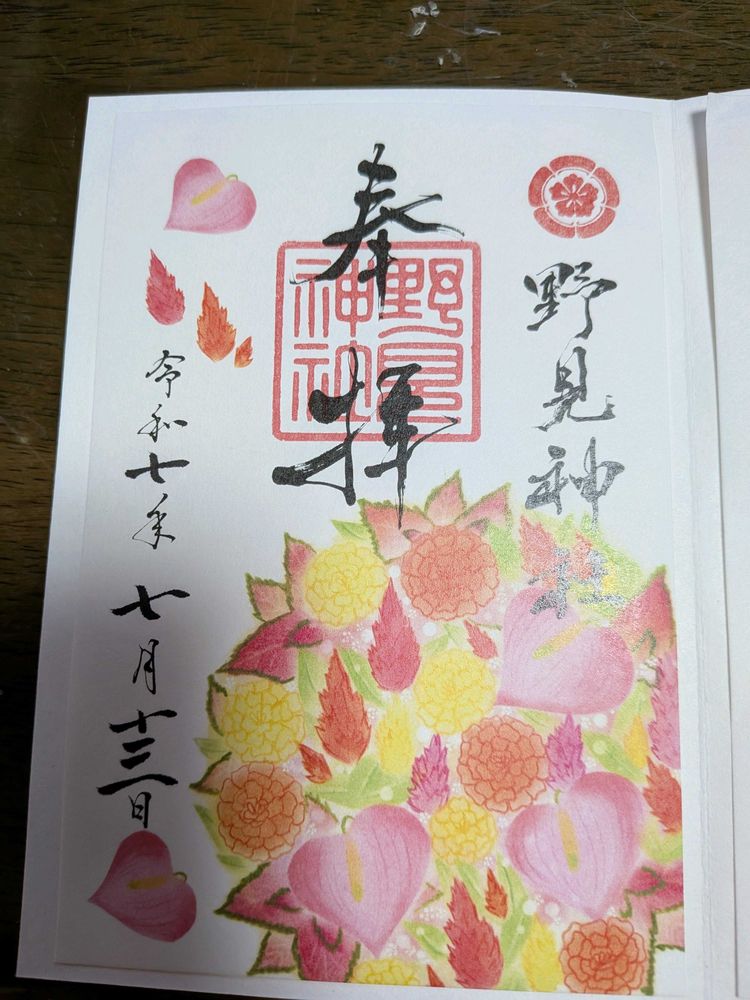 野見神社
奉拝
野見神社
令和七年七月十三日